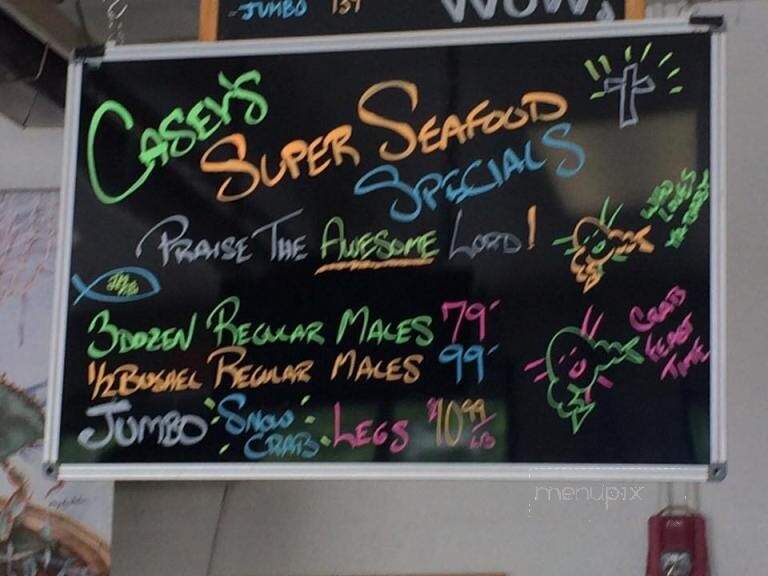 JUMBO 139 WOW!
CASEY'S
SUPER SEAFOOD
SPECIALS
PRAISE THE AWESOME LORD!
3 DOZEN REGULAR MALES 79
1/2 BUSHEL REGULAR MALES 99
JUMBO SNOW CRAB LEGS $10.99/LB
WHO LOVES
CRAB
FEAST
TIME
menupix